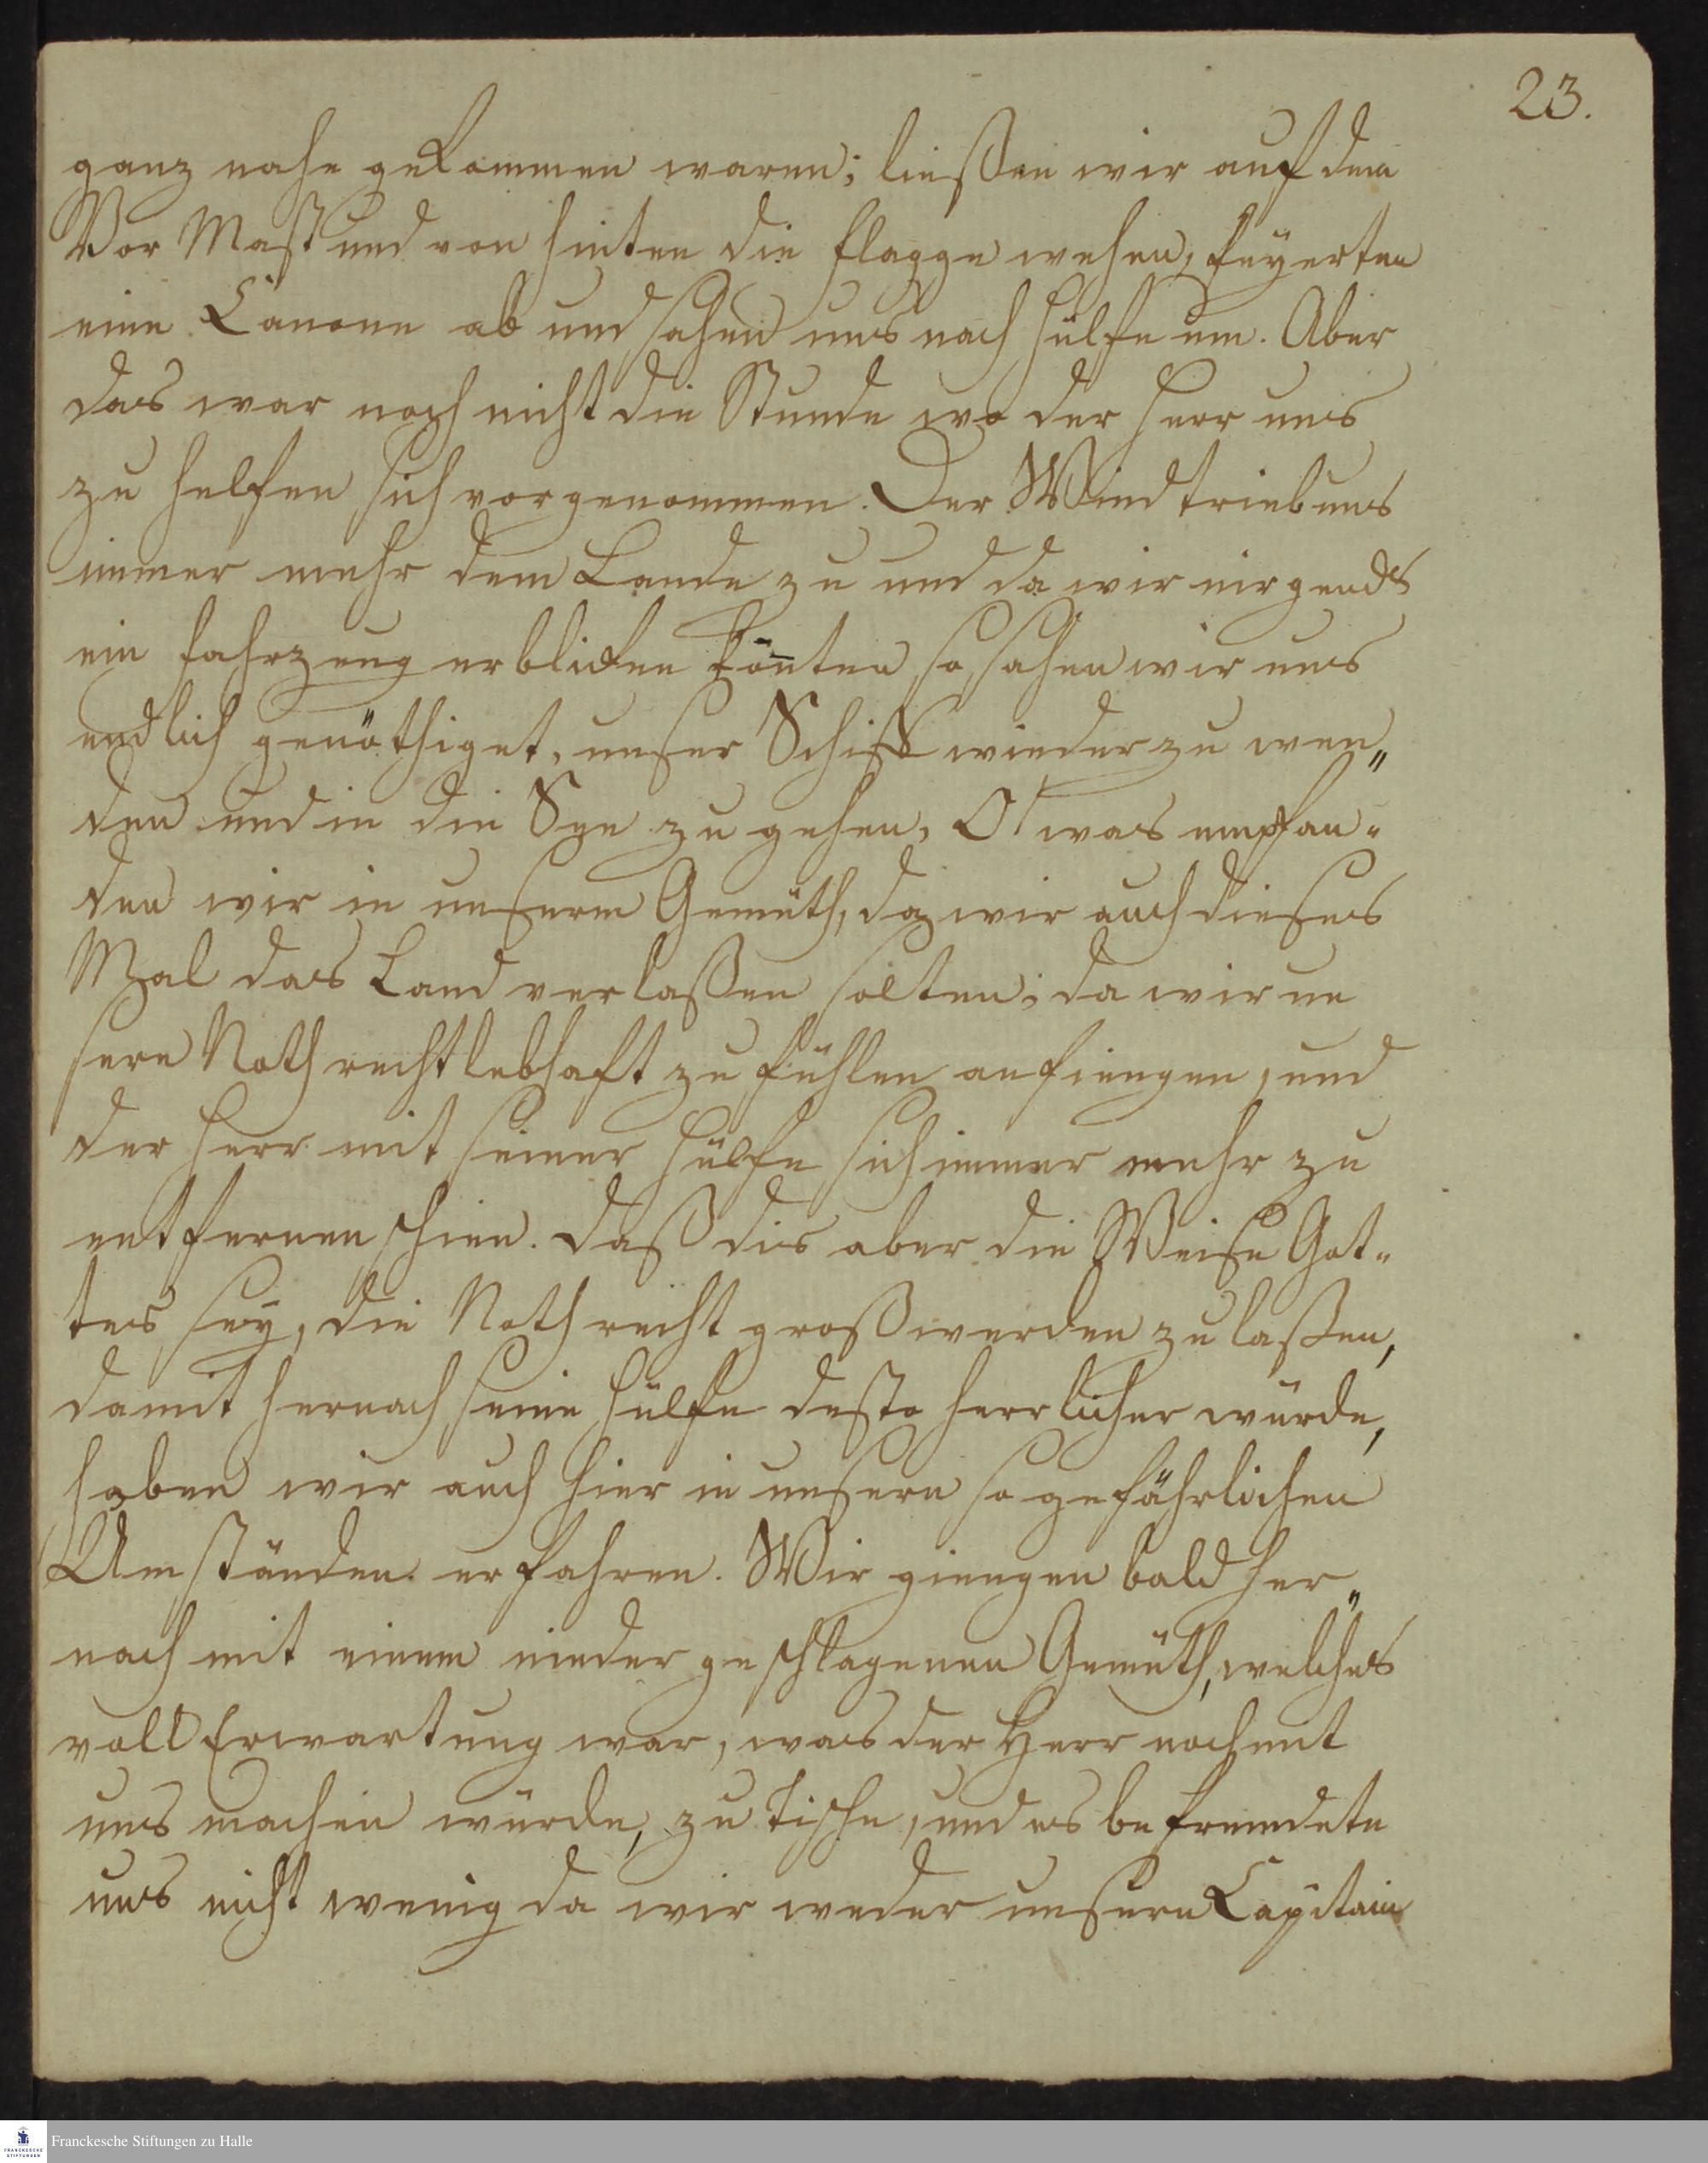 23.
ganz nahe gekommen waren; ließen wir auf dem
Vor Mast und von hinten die Flagge wehen, feyerten
eine Canone ab und sahen uns nach Hülfe um. Aber
das war noch nicht die Stunde wo der Herr uns
zu helfen sich vorgenommen. Der Wind trieb uns
immer mehr dem Lande zu und da wir nirgends
ein Fahrzeug erblicken kon̄ten, so sahen wir uns
endlich genöthiget, unser Schiff wieder zu wen„
den und in die See zu gehen, O! was empfan„
den wir in unserm Gemüth, da wir auch dieses
Mal das Land verlaßen solten; da wir un
sere Noth recht lebhaft zu fühlen anfiengen, und
der Herr mit seiner Hülfe sich immer mehr zu
entfernen schien. Daß dis aber die Weise Got„
tes sey, die Noth recht groß werden zu laßen,
damit hernach seine Hülfe desto herrlicher würde,
haben wir auch hier in unsern so gefährlichen
Umständen erfahren. Wir giengen bald her„
nach mit einem niedergeschlagenen Gemüth, welches
voll Erwartung war, was der Herr noch mit
uns machen würde, zu Tische, und es befremdete
uns nicht wenig da wir weder unsern Capitain
Franckesche Stiftungen zu Halle
FRANCKESCHE
STIFTUNGEN